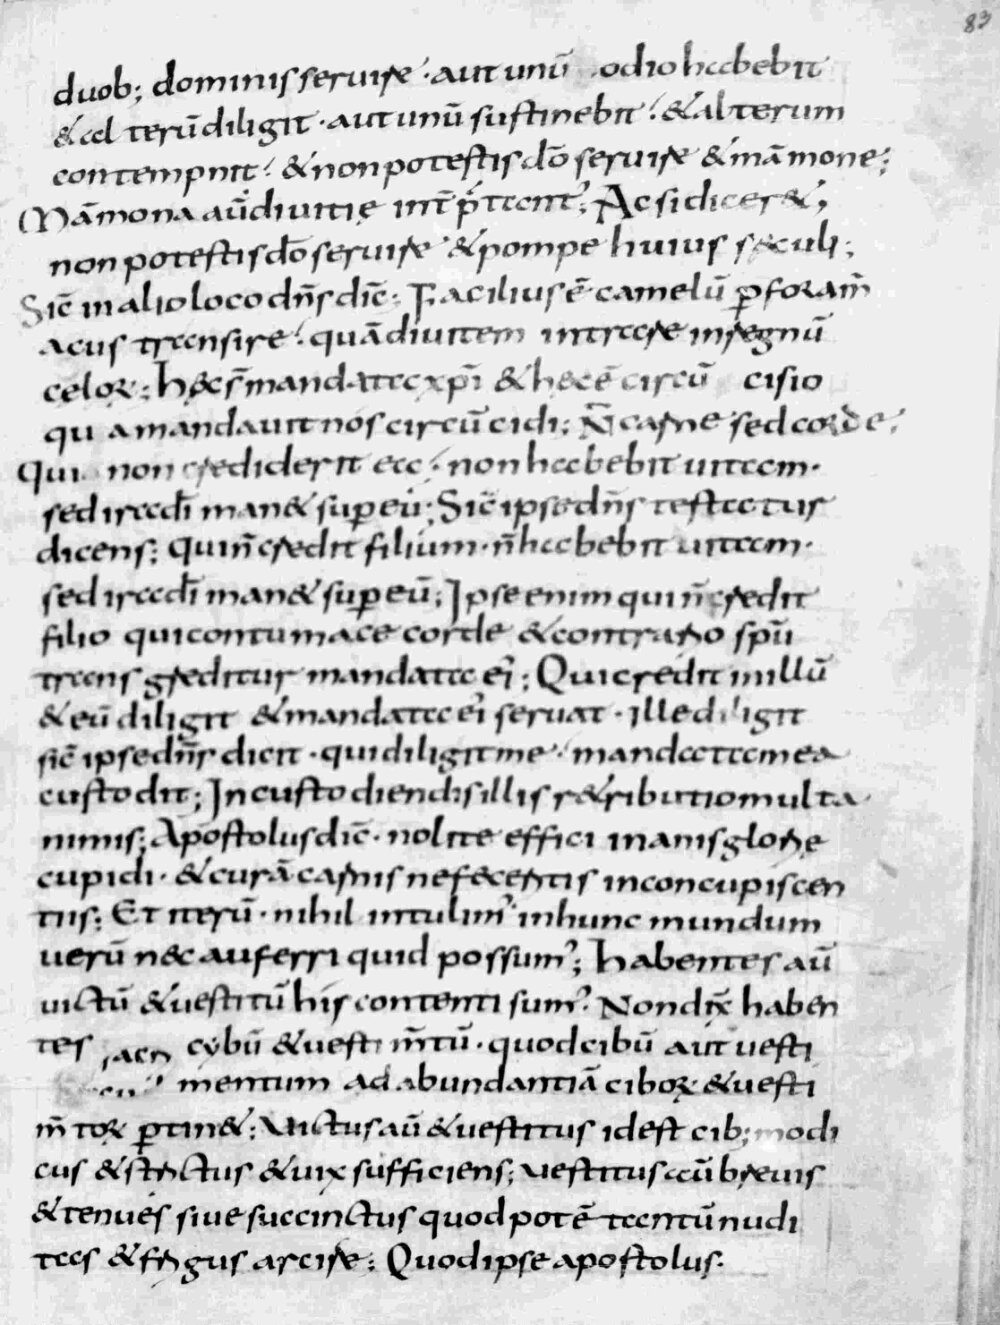 83
duob; dominis seruire · aut unū odio habebit
& alterū diligit · aut unū sustinebit · & alterum
contempnit · & non potestis dō seruire & māmone;
Māmona aū diuitię int̄p̄tant᾽; Ac si dicer&;
non potestis dō seruire & pompe huius sęculi;
Sic̄ in alio loco dn̄s dic̄; Facilius ē camelū ꝑ foram̄
acus transire · quā diuitem intrare in regnū
cęloꝝ; hęc s̄ mandata xp̄i & hęc ē circū cisio
qua mandauit nos circūcidi; N̄ carne sed corde;
Qui non crediderit ea · non habebit uitam ·
sed ira dī man& super eū; Sic̄ ipse dn̄s testatus
dicens; qui n̄ credit filium · n̄ habebit uitam ·
sed ira dī man& super eū; Ipse enim qui n̄ credit
filio qui contumace corde & contrario sp̄u
transgreditur mandata ei᾽; Qui credit in illū
& eū diligit & mandata ei᾽ seruat · ille diligit
sic̄ ipse dn̄s dicit · qui diligit me · mandata mea
custodit; In custodiendis illis r&ributio multa
nimis; Apostolus dic̄ · nolite effici inanis glorię
cupidi · & curā carnis ne feceritis in concupiscen
tiis; Et iterū · nihil intulim᾽ in hunc mundum
uerū nec auferri quid possum᾽; habentes aū
uictū & uestitū his contenti sum᾽ Non dix̄ haben
tes cybū & uestim̄tū · quod cibū aut uesti
mentum ad abundantiā ciboꝝ & uesti
m̄toꝝ ꝑtin&; Uictus aū & uestitus id est cib; modi
cus & strictus & uix sufficiens; uestitus aū breuis
& tenues siue succinctus quod pot ē tantū nudi
tas & frigus arcire; Quod ipse apostolus.